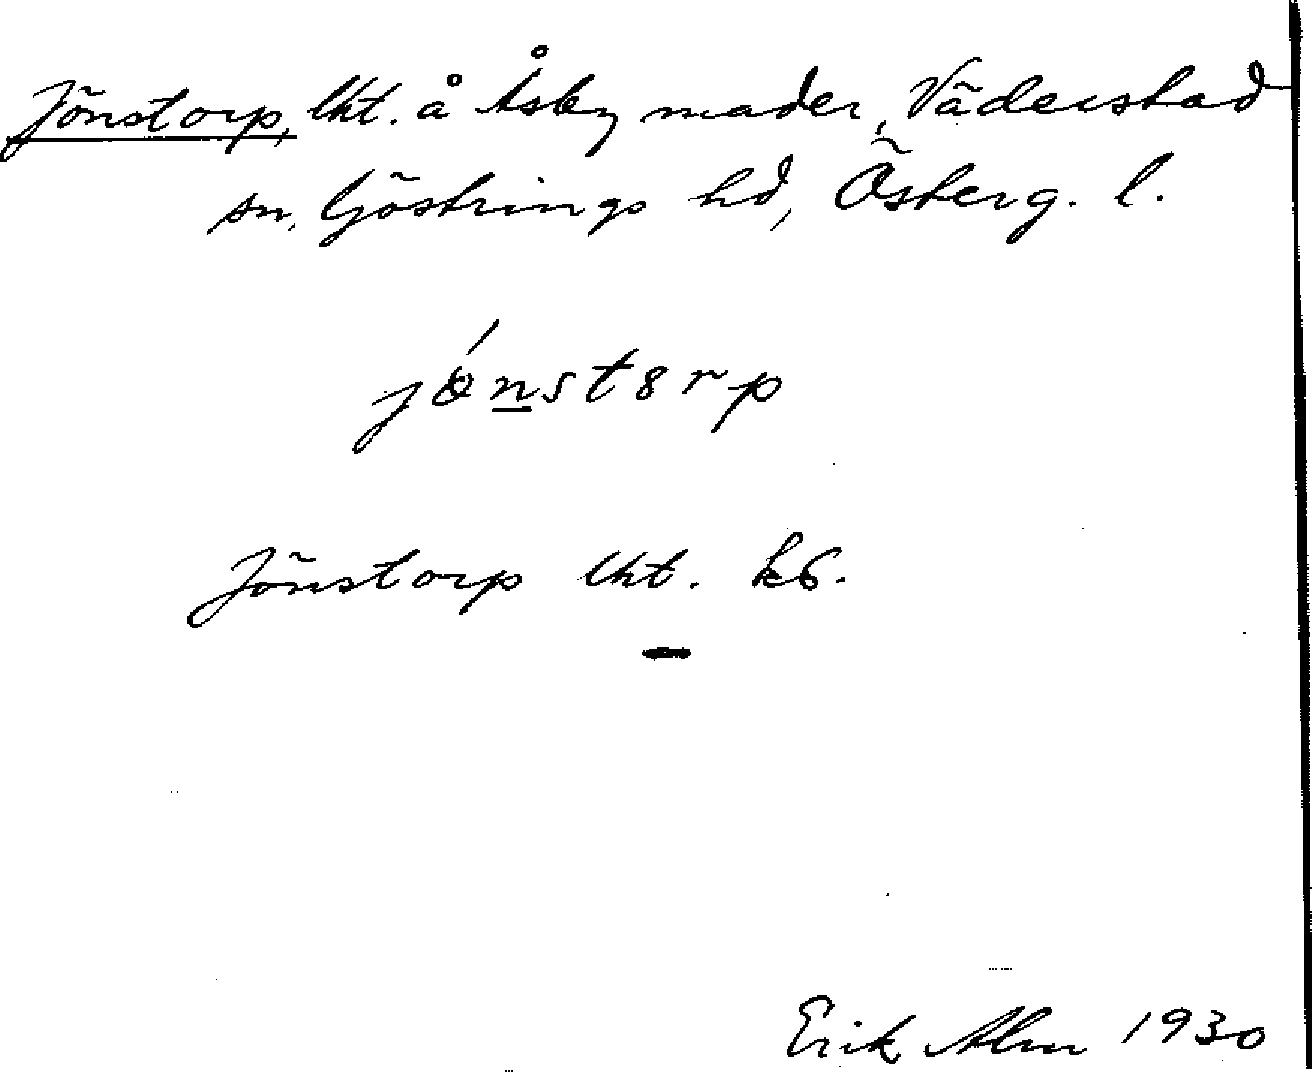 Jönstorp, lht. å Åsby mader, Väderstad
sn, Göstrings hd, Österg. l.
jönstorp
Jönstorp lht. k6.
Erik Alm 1930